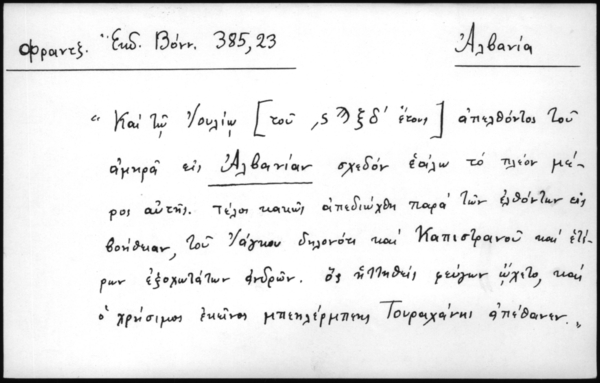 Φραντζ. Ἔκδ. Βόνν. 385,23
Ἀλβανία
"Καὶ τῷ Ἰουλίῳ [τοῦ ͵ϛϠξδ' ἔτους] ἀπελθόντος τοῦ
ἀμηρᾶ εἰς Ἀλβανίαν σχεδόν ἑάλω τό πλέον μέ-
ρος αὐτῆς. τέλος κακῶς ἀπεδιώχθη παρά τῶν ἐλθόντων εἰς
βοήθειαν, τοῦ Ἰάγκου δηλονότι καί Καπιστρανοῦ καί ἑτέ-
ρων ἐξοχωτάτων ἀνδρῶν. ὅς ἡττηθείς φεύγων ᾤχετο, καί
ὁ χρήσιμος ἐκεῖνος μπεηλέρμπεης Τουραχάνης ἀπέθανεν."